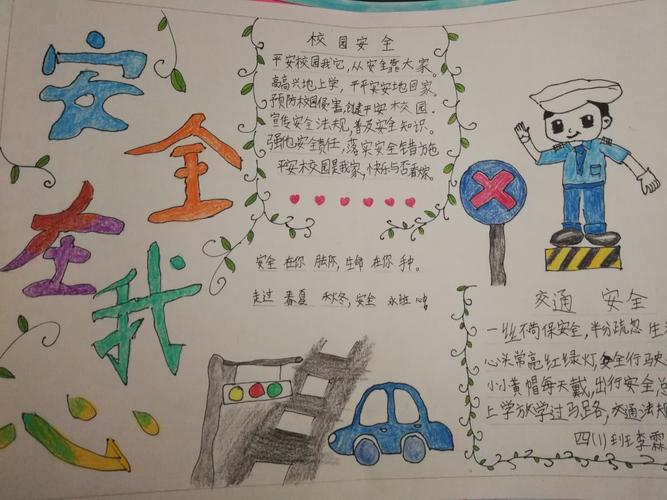 安全在我心
校园安全
平安校园我它，从安全靠大家。
高高兴地上学，平平安安地回家。
预防校园侵害，创建平安校园。
宣传安全法规，普及安全知识。
强他安全责任，落实安全错方色
平安校园是我家，快乐与否看你。
安全在你脚所，生命在你手。
走过春夏秋冬，安全永驻心
交通安全
一丝不苟保安全，半分疏忽生
心头常亮红绿灯，安全行驶
小小黄帽每天戴，出行安全
上学放学过马路，交通法
四(1)班李霖